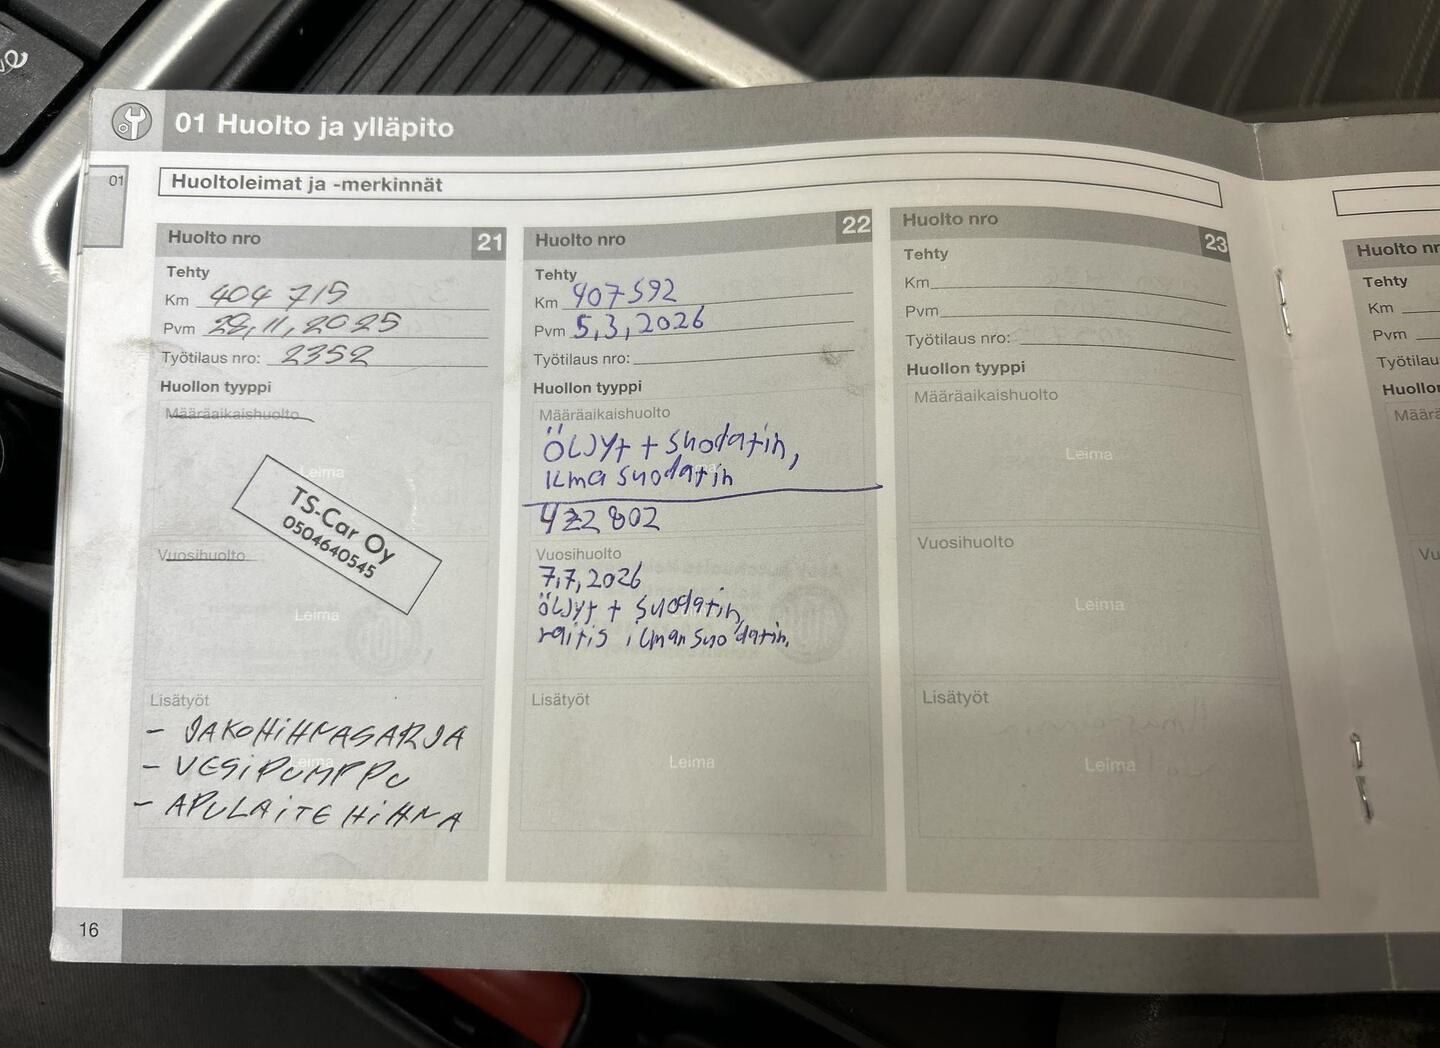 01 Huolto ja ylläpito
01
Huoltoleimat ja -merkinnät
Huolto nro 21
Tehty
Km 404 715
Pvm 28,11,2025
Työtilaus nro: 2352
Huollon tyyppi
Määräaikaishuolto
Leima
TS-Car Oy
0504640545
Vuosihuolto
Leima
Lisätyöt
- JAKOHiHNASARJA
Leima
- VESiPUMPPU
- APULAiTE HiHNA
Huolto nro 22
Tehty
Km 407592
Pvm 5,3,2026
Työtilaus nro:
Huollon tyyppi
Määräaikaishuolto
ÖLJYt + suodatin,
ilmasuodatin
422 802
Vuosihuolto
7,7,2026
öljyt + suodatin,
raitis ilman suodatin,
Lisätyöt
Leima
Huolto nro 23
Tehty
Km
Pvm
Työtilaus nro:
Huollon tyyppi
Määräaikaishuolto
Leima
Vuosihuolto
Leima
Lisätyöt
Leima
Huolto nr
Tehty
Km
Pvm
Työtila
Huollon
Määrä
Vu
16